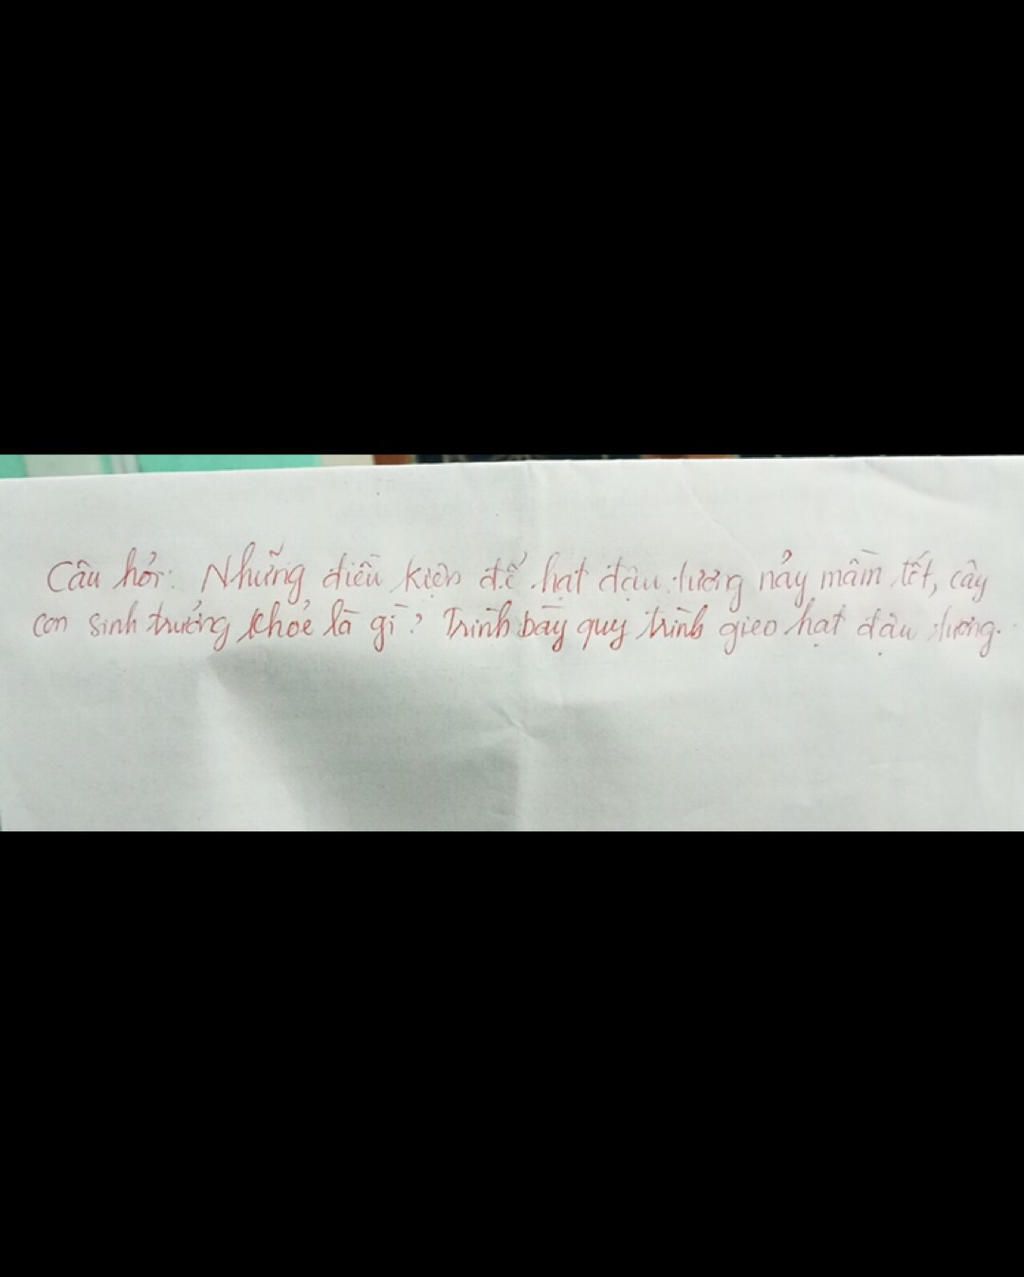 Câu hỏi: Những điều kiện để hạt đậu tương nảy mầm tốt, cây
con sinh trưởng khoẻ là gì? Trình bày quy trình gieo hạt đậu tương.